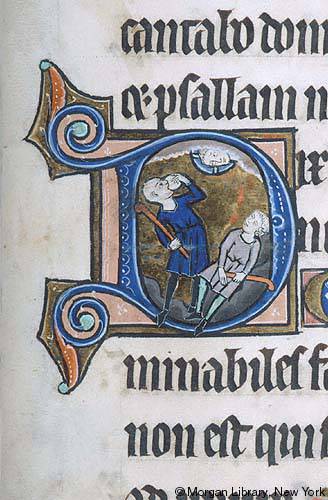 cantabo dom
psallam n
D
minabiles fa
non est qui
© Morgan Library, New York